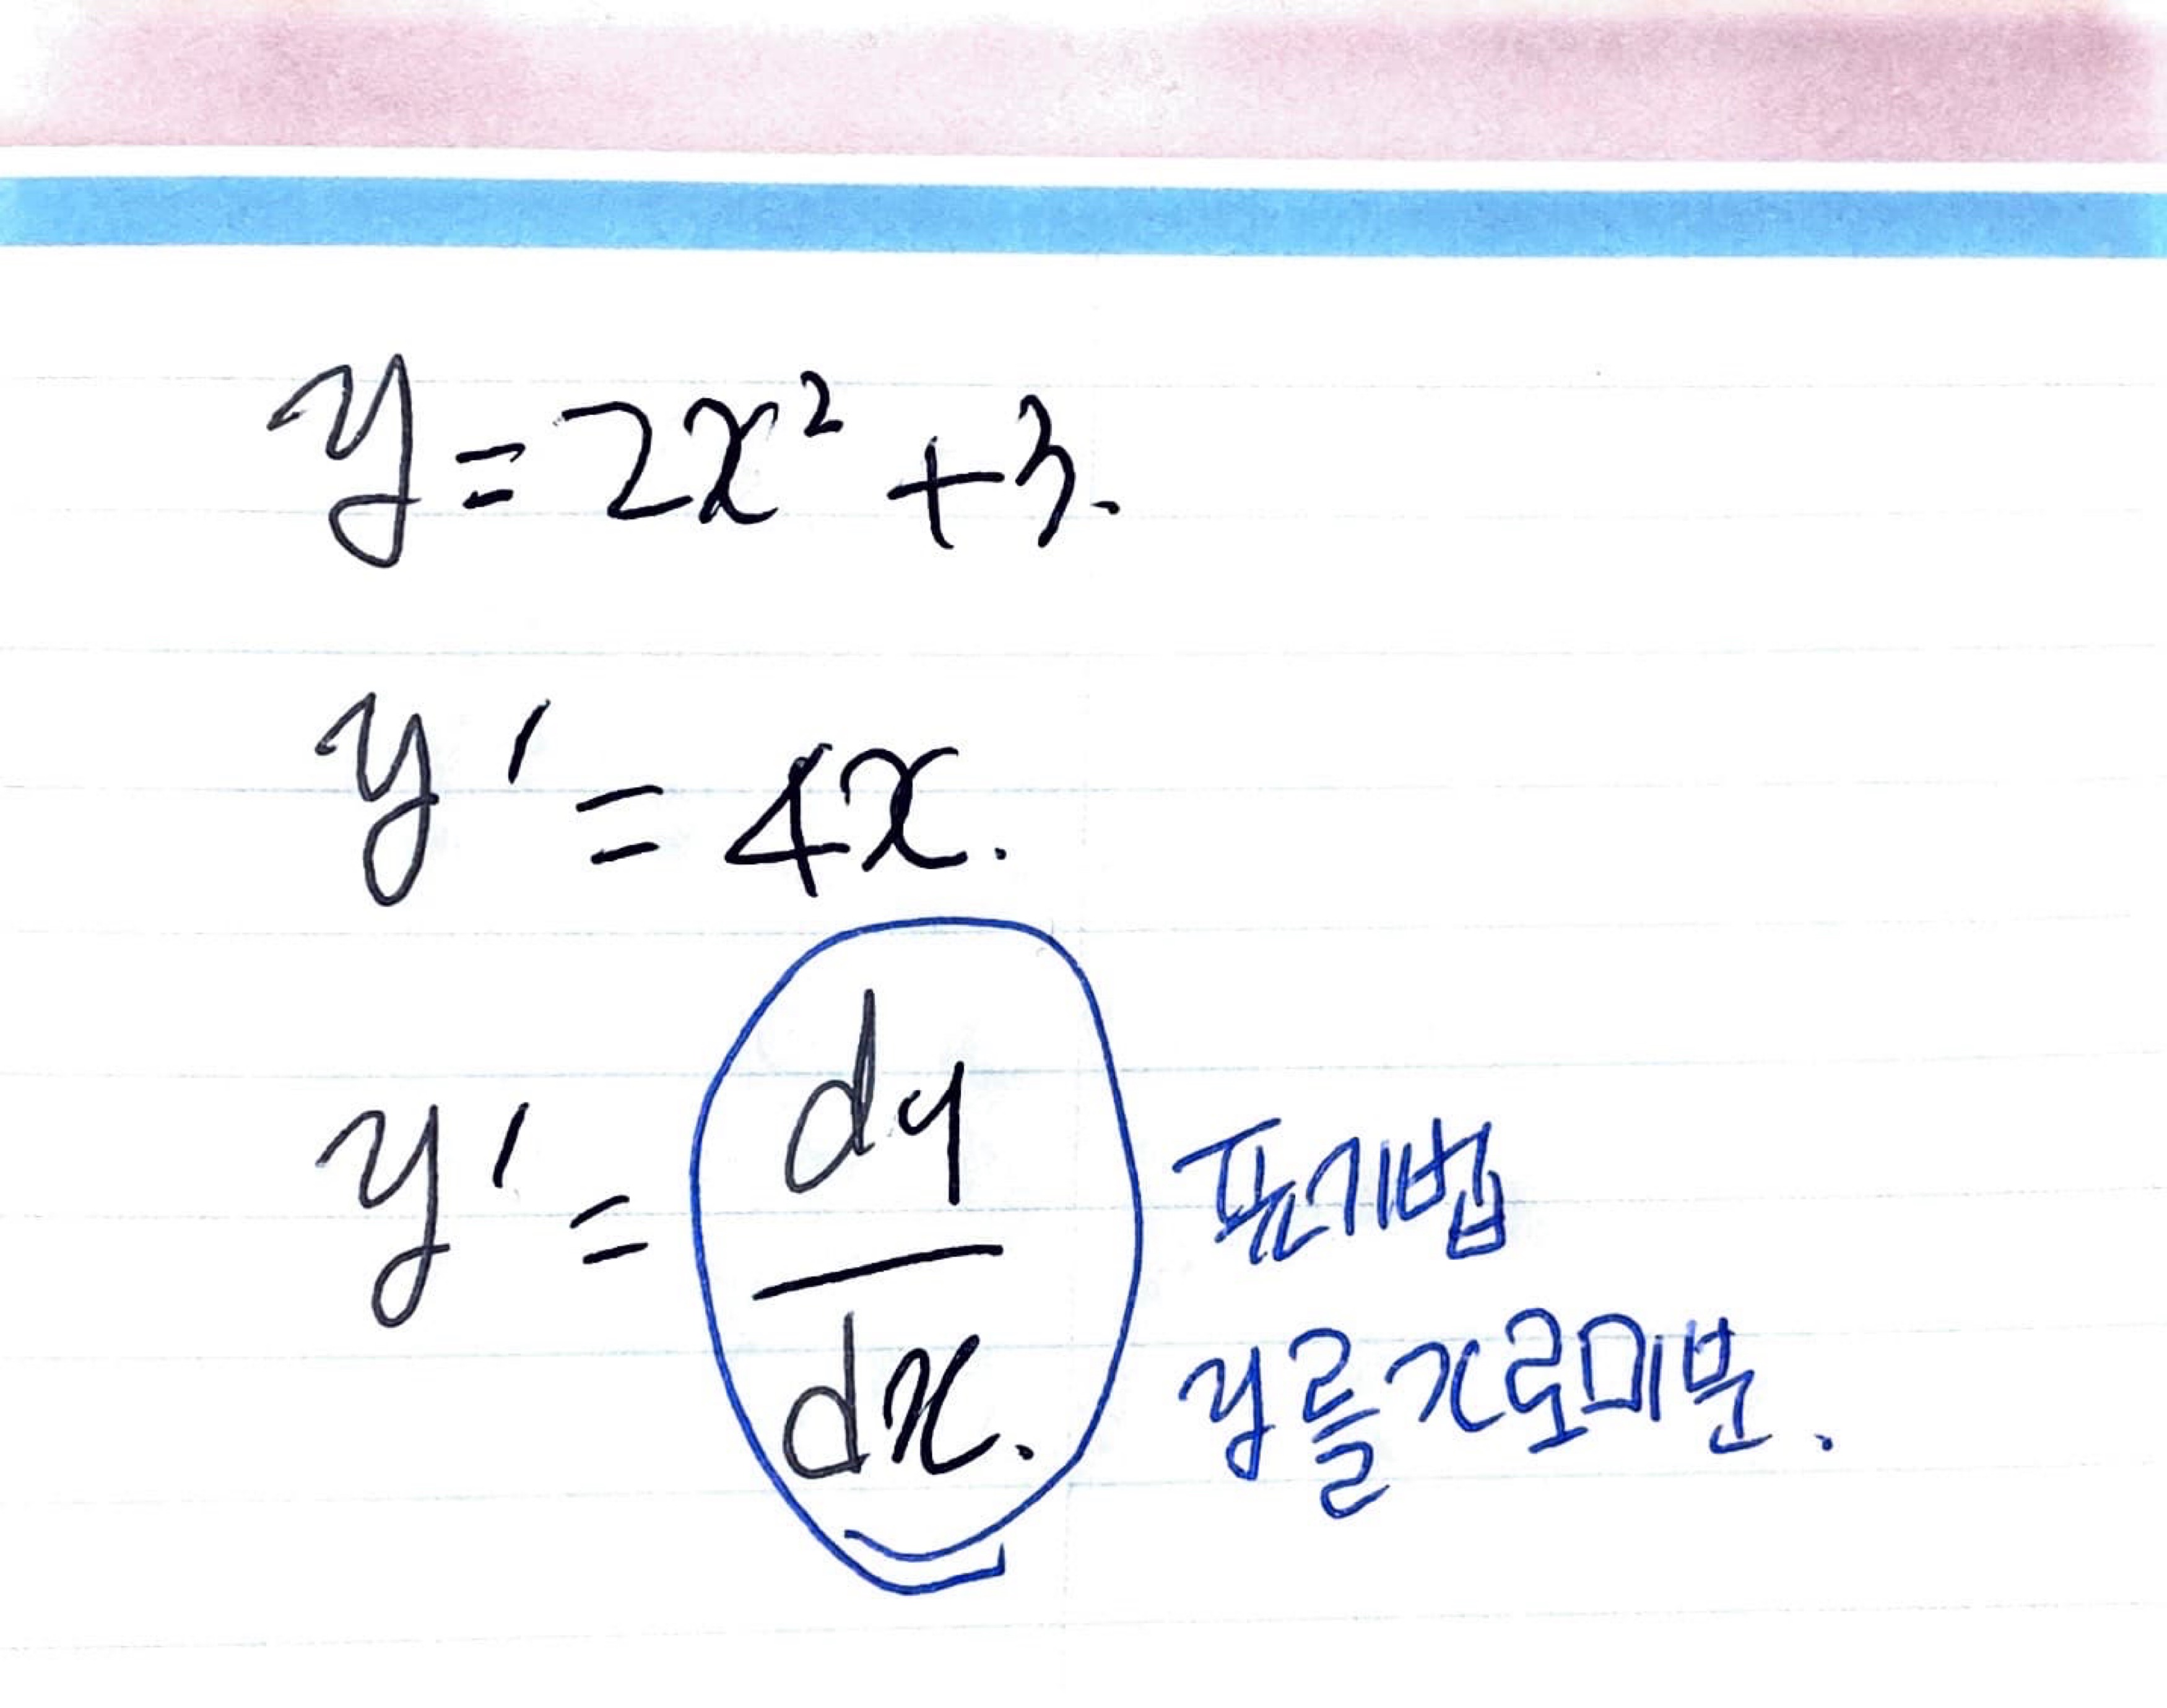 y = 2x² + 3.
y' = 4x.
y' = dy/dx.
표기법
y를 x로 미분.